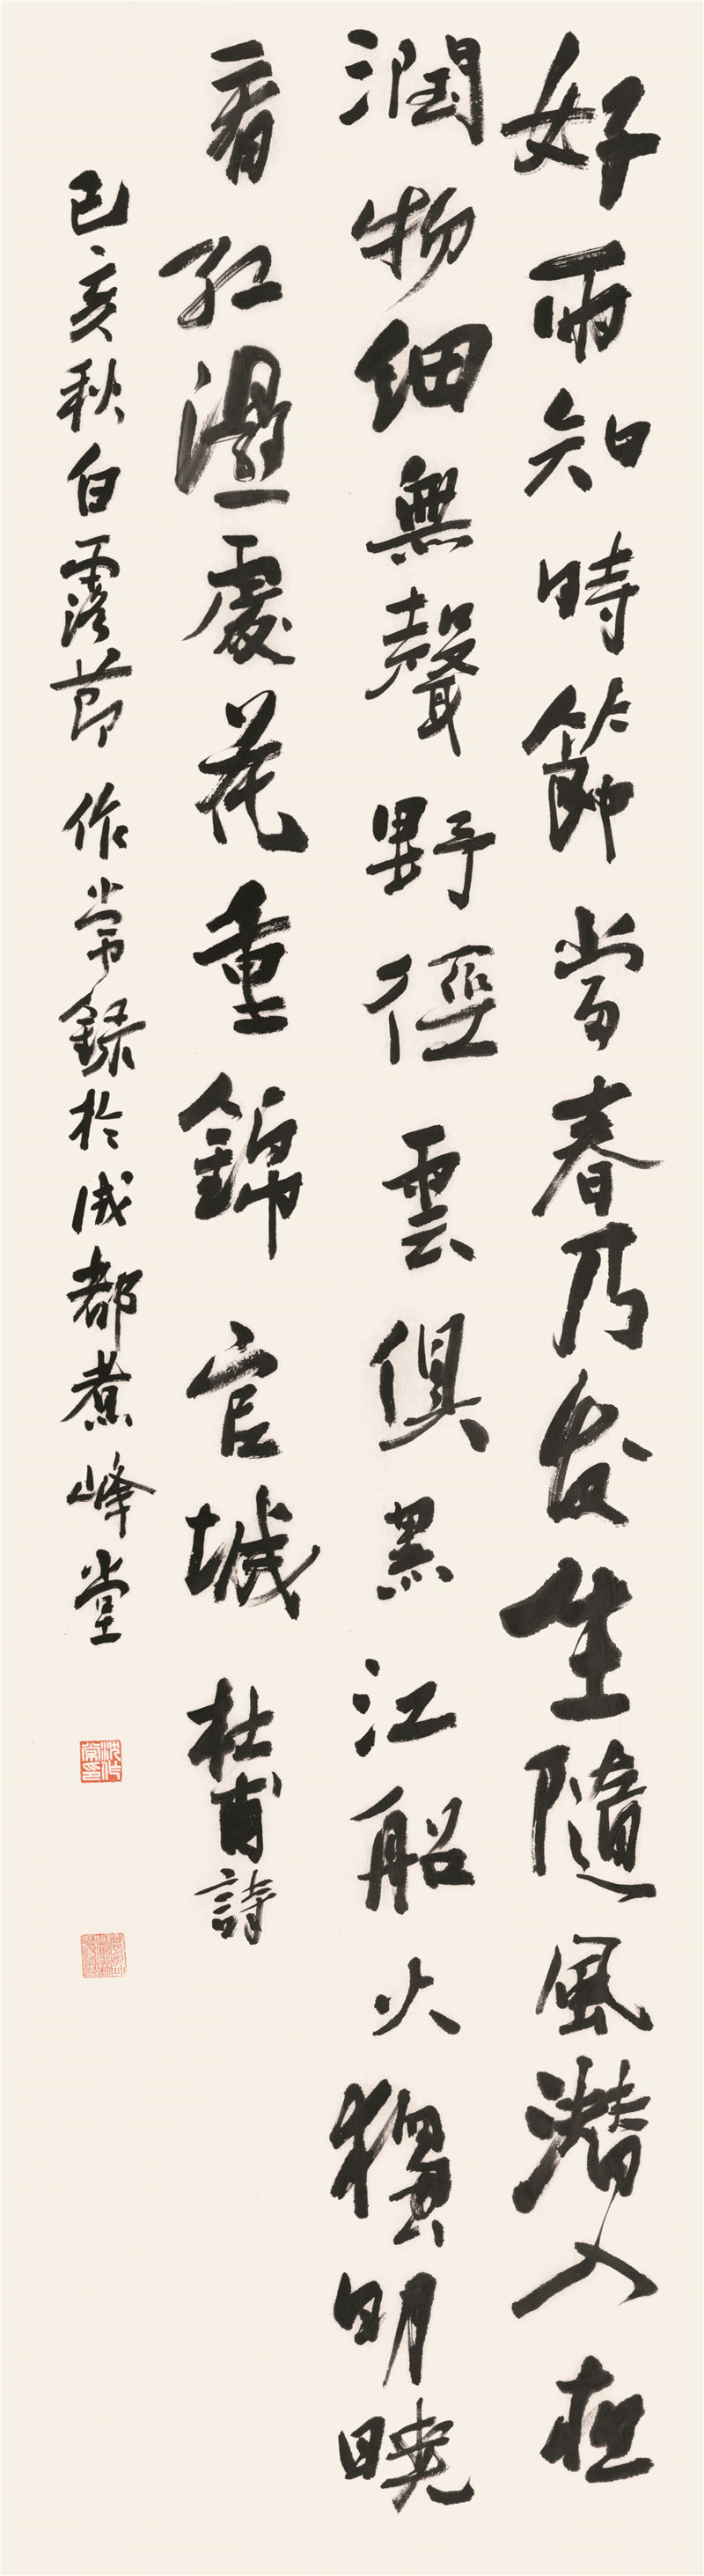 好雨知時節當春乃发生隨風潛入夜
潤物細無聲野徑雲俱黑江船火獨明曉
看紅濕處花重錦官城 杜甫詩
己亥秋白露節作常錄於成都煮峰堂